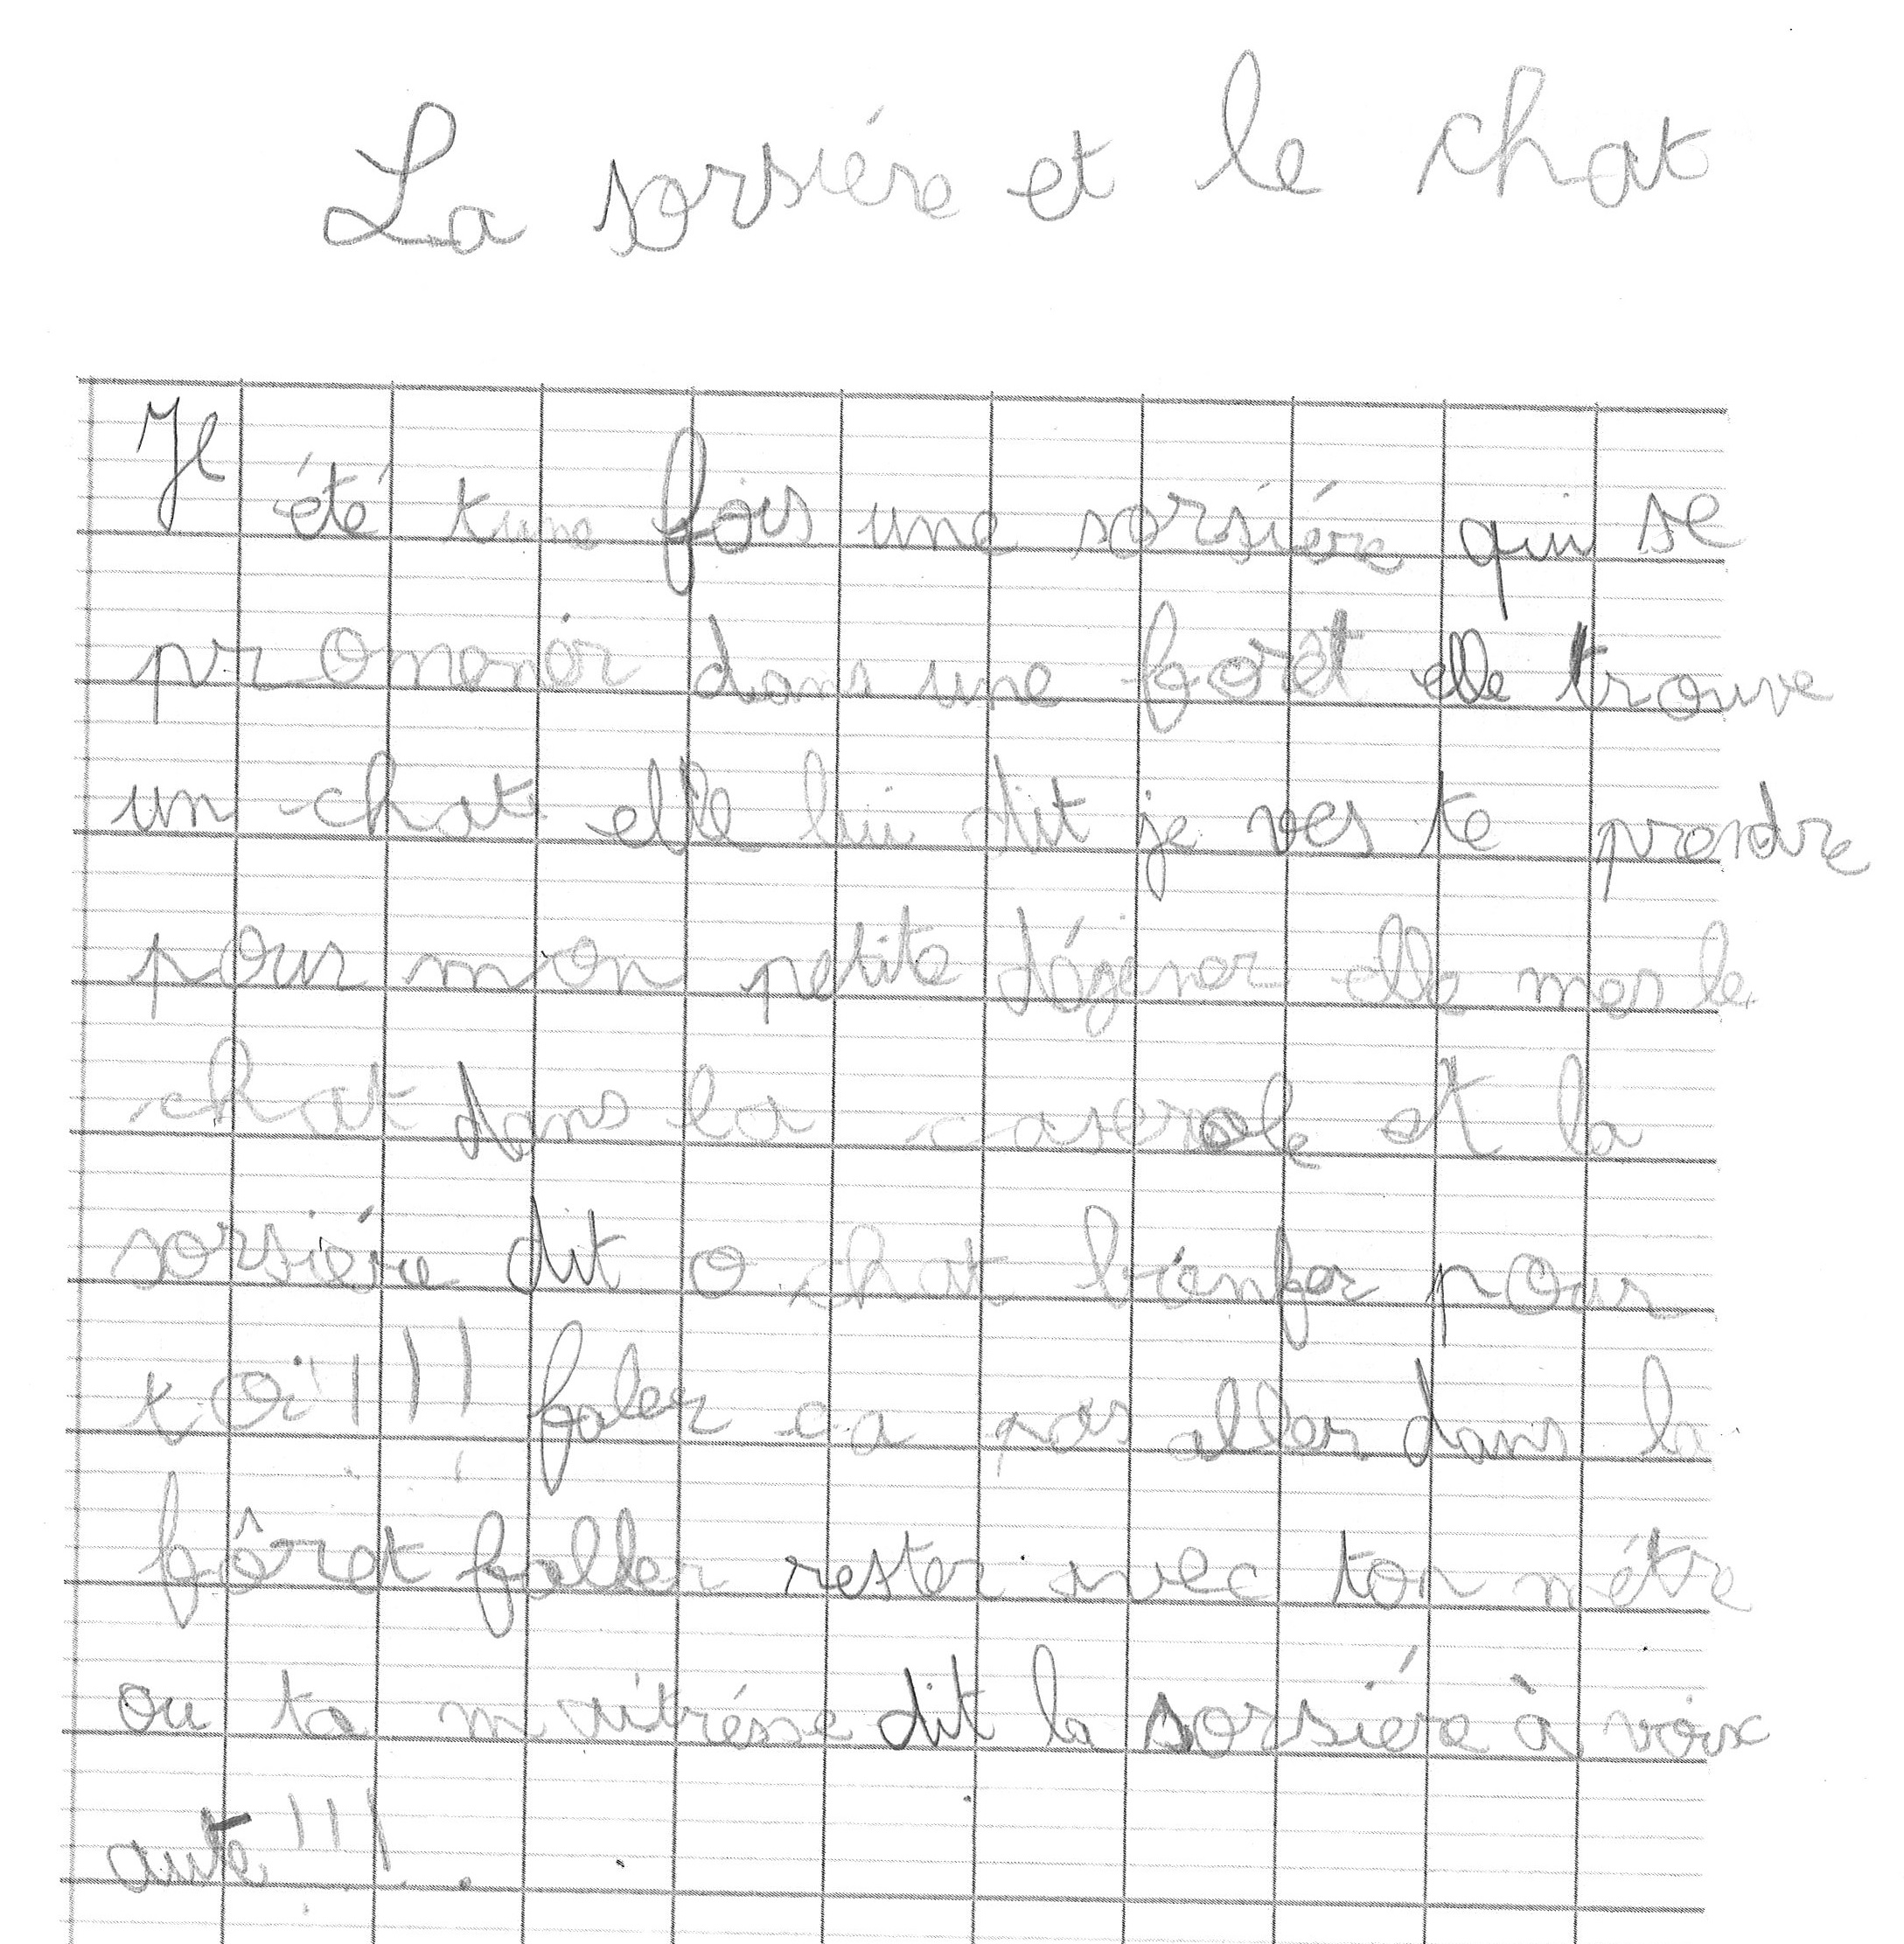 La sorsiére et le chat
Il été tune fois une sorsiére qui se
promener dans une forêt elle trouve
un chat elle lui dit je ves te prendre
pour mon petite dégener elle mes le
chat dans la caserole et la
sorsiére dit o chat bienfer pour
toi !!! faler ca pas aller dans la
fôret faller rester avec ton métre
ou ta maitrésse dit la sorsiére à voix
aute !!!